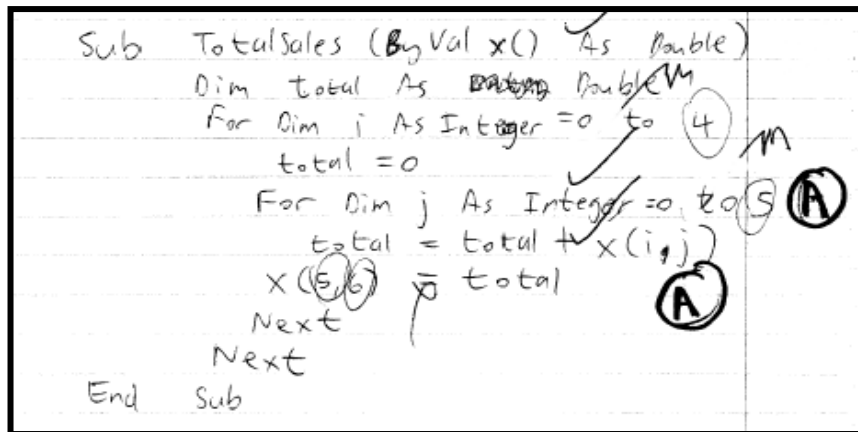 Sub TotalSales (ByVal x() As Double)
Dim total As Double
For Dim i As Integer = 0 to 4
total = 0
For Dim j As Integer = 0 to 5 A
total = total + x(i,j)
x(5,6) = total A
Next
Next
End Sub